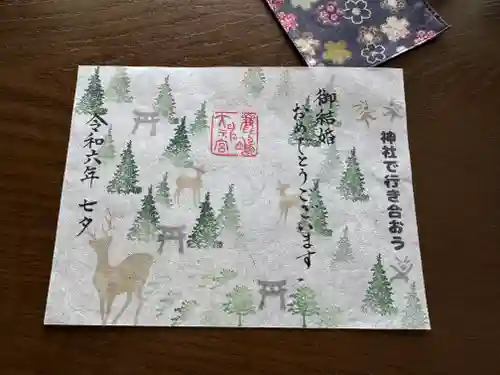 神社で行き合おう
御結婚
おめでとうございます
令和六年 七夕